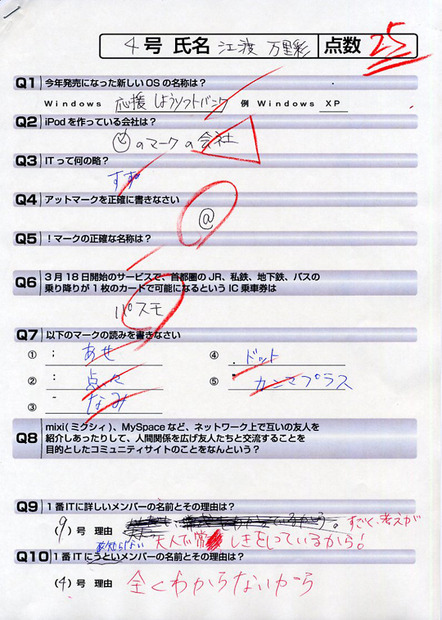 4号 氏名 江渡 万里彩 点数 25
Q1 今年発売になった新しいOSの名称は?
Windows 応援しようソフトバンク 例 Windows XP
Q2 iPodを作っている会社は?
のマークの会社
Q3 ITって何の略?
すず
Q4 アットマークを正確に書きなさい
@
Q5 !マークの正確な名称は?
Q6 3月18日開始のサービスで、首都圏のJR、私鉄、地下鉄、バスの
乗り降りが1枚のカードで可能になるというIC乗車券は
パスモ
Q7 以下のマークの読みを書きなさい
① : あせ ④ . ドット
② ; 点々 ⑤ カンマプラス
③ ~ なみ
Q8 mixi(ミクシィ)、MySpaceなど、ネットワーク上で互いの友人を
紹介しあったりして、人間関係を広げ友人たちと交流することを
目的としたコミュニティサイトのことをなんという?
Q9 1番ITに詳しいメンバーの名前とその理由は?
(9)号 理由 すごく考えが
大人で常しきをしっているから!
Q10 1番ITにうといメンバーの名前とその理由は?
(4)号 理由 全くわからないから